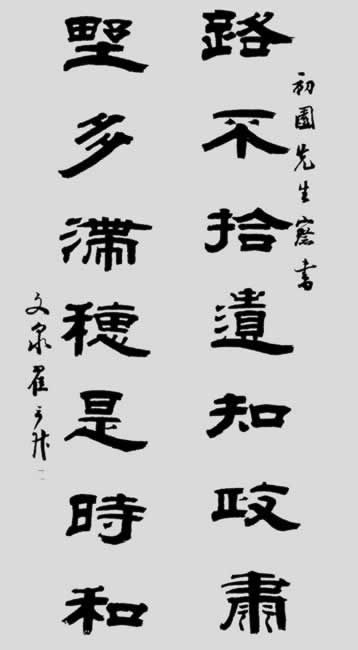 初園先生察書
路不拾遺知政肅
野多滯穗是時和
文泉翟云升